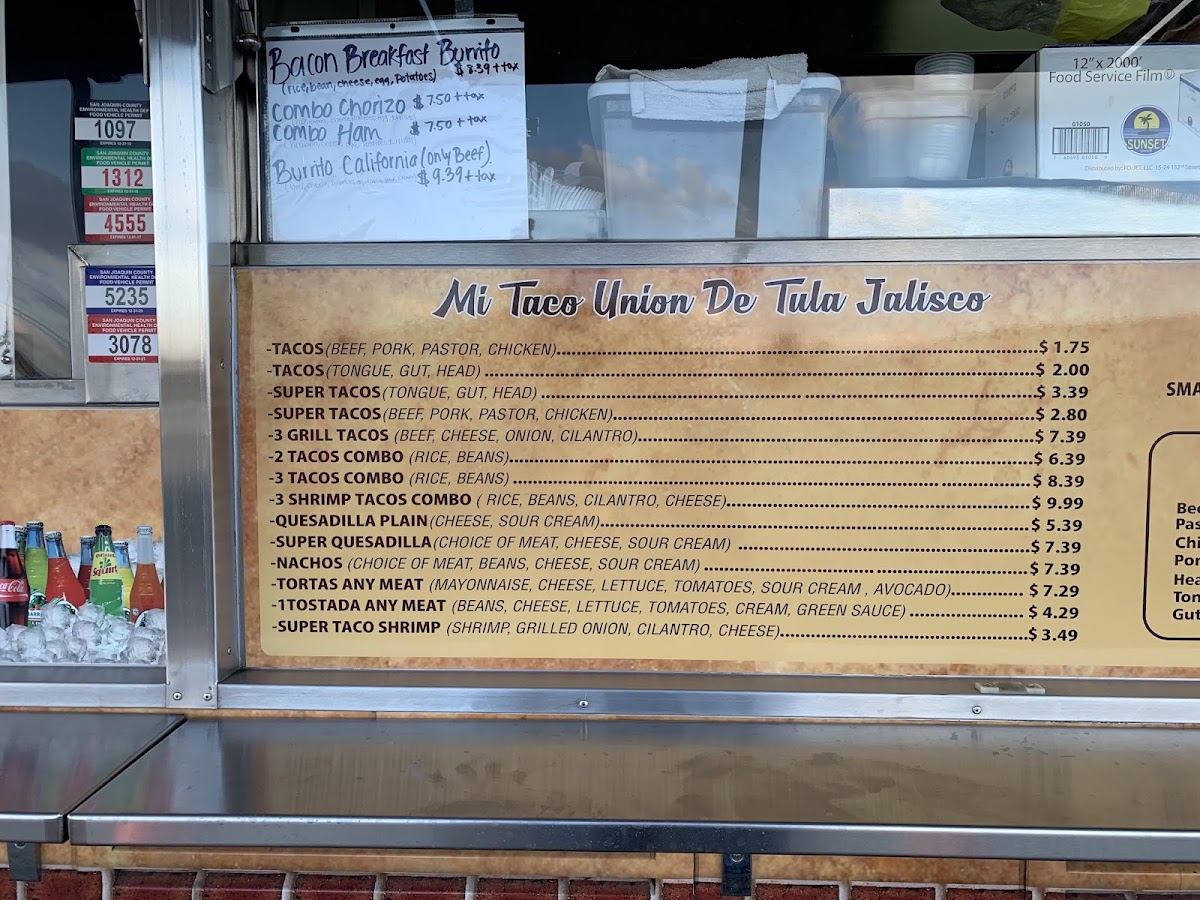 Bacon Breakfast Burrito
(rice, bean, cheese, egg, Potatoes) $8.39 + tax
Combo Chorizo $7.50 + tax
Combo Ham $7.50 + tax
Burrito California (only Beef)
$9.39 + tax
12" x 2000'
Food Service Film
01050
SUNSET
SAN JOAQUIN COUNTY
ENVIRONMENTAL HEALTH
FOOD VEHICLE PERMIT
1097
SAN JOAQUIN COUNTY
ENVIRONMENTAL HEALTH
FOOD VEHICLE PERMIT
1312
SAN JOAQUIN COUNTY
ENVIRONMENTAL HEALTH
FOOD VEHICLE PERMIT
4555
SAN JOAQUIN COUNTY
ENVIRONMENTAL HEALTH
FOOD VEHICLE PERMIT
5235
SAN JOAQUIN COUNTY
ENVIRONMENTAL HEALTH
FOOD VEHICLE PERMIT
3078
Mi Taco Union De Tula Jalisco
-TACOS (BEEF, PORK, PASTOR, CHICKEN) $ 1.75
-TACOS (TONGUE, GUT, HEAD) $ 2.00
-SUPER TACOS (TONGUE, GUT, HEAD) $ 3.39
-SUPER TACOS (BEEF, PORK, PASTOR, CHICKEN) $ 2.80
-3 GRILL TACOS (BEEF, CHEESE, ONION, CILANTRO) $ 7.39
-2 TACOS COMBO (RICE, BEANS) $ 6.39
-3 TACOS COMBO (RICE, BEANS) $ 8.39
-3 SHRIMP TACOS COMBO ( RICE, BEANS, CILANTRO, CHEESE) $ 9.99
-QUESADILLA PLAIN (CHEESE, SOUR CREAM) $ 5.39
-SUPER QUESADILLA (CHOICE OF MEAT, CHEESE, SOUR CREAM) $ 7.39
-NACHOS (CHOICE OF MEAT, BEANS, CHEESE, SOUR CREAM) $ 7.39
-TORTAS ANY MEAT (MAYONNAISE, CHEESE, LETTUCE, TOMATOES, SOUR CREAM , AVOCADO) $ 7.29
-1TOSTADA ANY MEAT (BEANS, CHEESE, LETTUCE, TOMATOES, CREAM, GREEN SAUCE) $ 4.29
-SUPER TACO SHRIMP (SHRIMP, GRILLED ONION, CILANTRO, CHEESE) $ 3.49
SMA
Bee
Pas
Chi
Por
Hea
Ton
Gut
Coca-Cola
Squirt